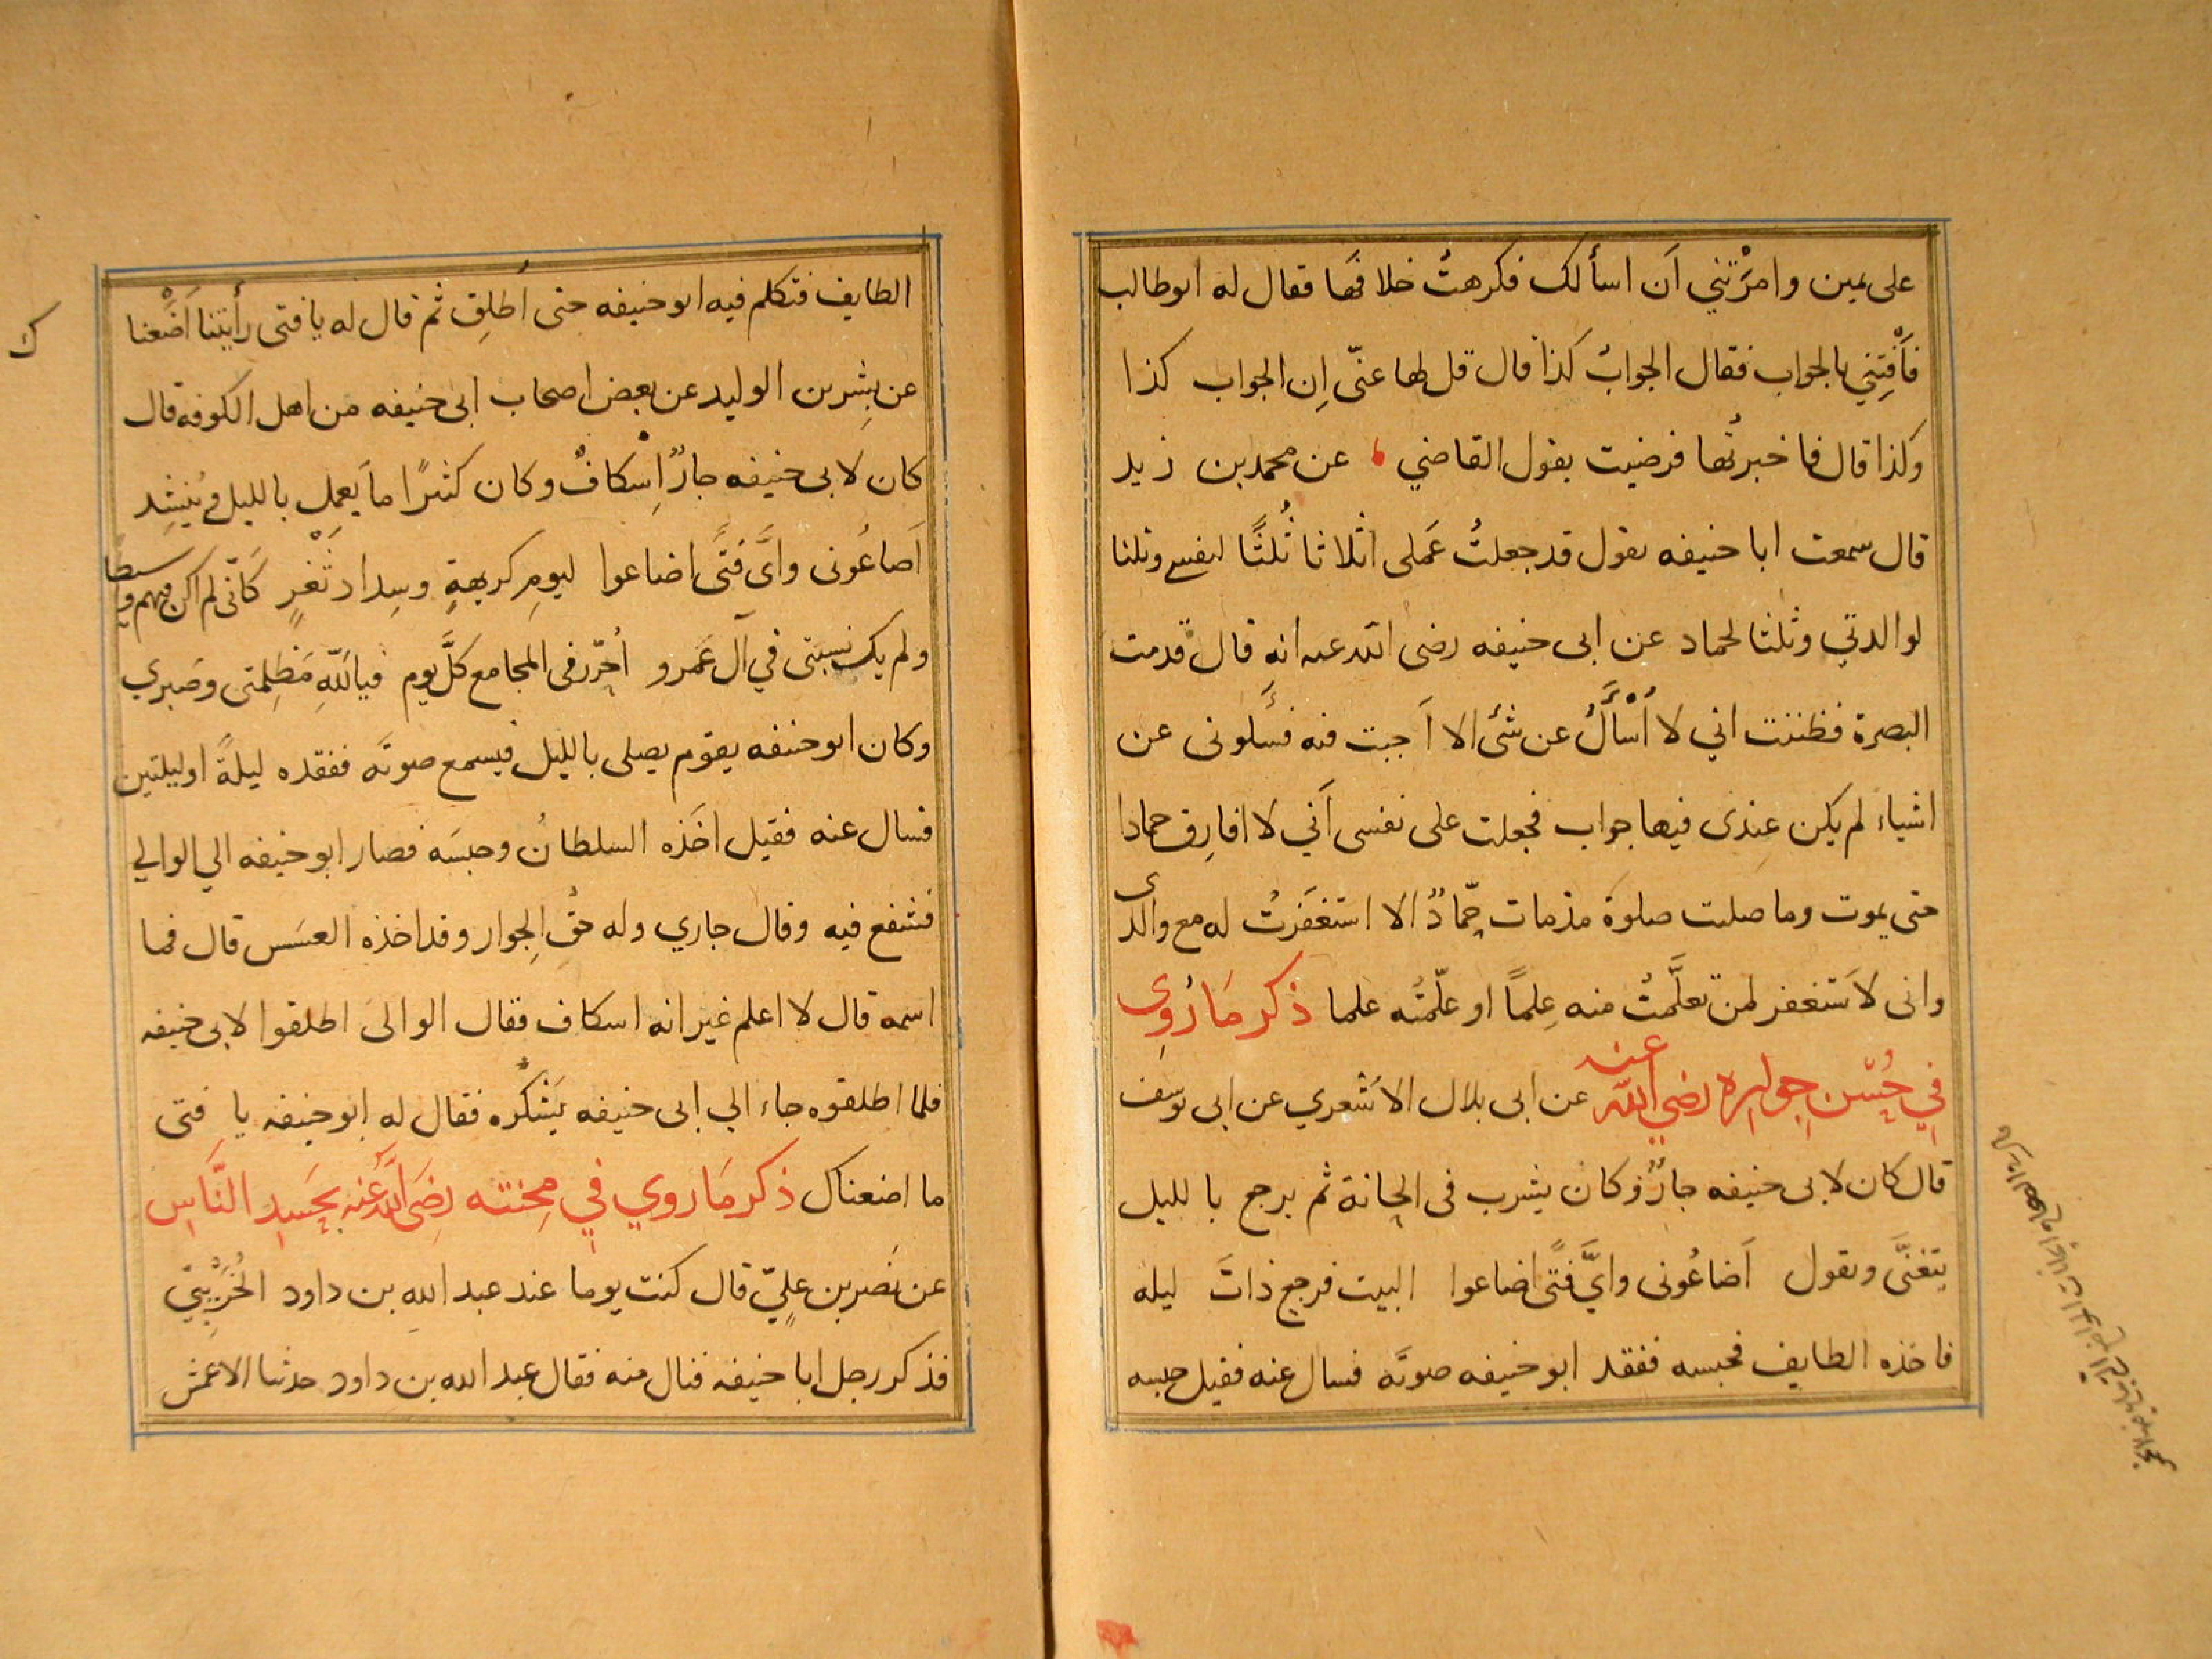 على يمين وامرَتْني اَن اسألك فكرهتُ خلافها فقال له ابوطالب
فأَفْتِني بالجواب فقال الجوابُ كذا قال قل لها عنّى اِن الجواب كذا
وكذا قال فاخبرتُها فرضيت بقول القاضي ، عن محمد بن زيد
قال سمعت ابا حنيفه يقول قد جعلتُ عَملى اثلاثا ثُلثًا لنفسى وثلثا
لوالدتي وثلثا لحماد عن ابى حنيفه رضى الله عنه انه قال قدمت
البصرة فظننت اني لا اُسْأَلُ عن شئ الا اَجبت فيه فسَألونى عن
اشياء لم يكن عِندى فيها جواب فجعلت على نفسى اَني لا افارِق حمادا
حتى يموت وما صليت صلوة مذمات حمّادٌ الا استغفرتُ له مع والدى
وانى لاَستغفر لمن تعلَّمتُ منه عِلمًا او علّمتُه علما ذكر مَا رُوِى
في حُسْن جواره رضي الله عنه عن ابى بلال الاَشعري عن ابى يوسف
قال كان لابى حنيفه جارٌ وكان يشرب فى الحانة ثم يرجع بالليل
يتغنَّى ويقول اَضاعُونى وايَّ فتًى اضاعوا البيت فرجع ذاتَ ليله
فاخذه الطايف فحبسه ففقد ابو حنيفه صوتَه فسال عنه فقيل حبسه
الطايف فتكلم فيه ابو حنيفه حتى اُطلِق ثم قال له يا فتى رأيتنا اَضَعْنا
ك
عن بِشرِ بن الوليد عن بعض اصحاب ابى حنيفه من اهل الكوفه قال
كان لابى حنيفه جارٌ اِسْكافٌ وكان كثيرًا ما يَعمل بالليل ويُنشِد
اَضاعُونى واىَّ فَتًى اضاعوا ليومِ كريهةٍ وسِدادِ ثَغْرٍ كَانّى لم اكن فيهم وسيطا
ولم يك نسبتى في آل عَمرو اُجرّر فى المجامع كلَّ يوم فيا للّهِ مَظلِمتى وصَبري
وكان ابو حنيفه يقوم يصلى بالليل فيسمع صوتَه ففقده ليلةً او ليلتين
فسال عنه فقيل اخَذه السلطانُ وحبسَه فصار ابو حنيفه الي الوالي
فشفع فيه وقال جاري وله حقُ الجِوار وقد اخذه العسَس قال فما
اسمه قال لا اعلم غير انه اسكاف فقال الوالىَ اطلقوا لابى حنيفه
فلما اطلقوه جاء الي ابى حنيفه يَشْكُره فقال له ابو حنيفه يا فتى
ما اضعناك ذكر مَا روي في مِحنته رضَى اللهُ عنه بحَسَدِ النَّاسِ
عن نَصر بن عليٍّ قال كنت يوما عند عبد اللهِ بن داود الخُرَيْبيّ
فذكر رجل ابا حنيفه فنال منه فقال عبد الله بن داود حدثنا الاعمش